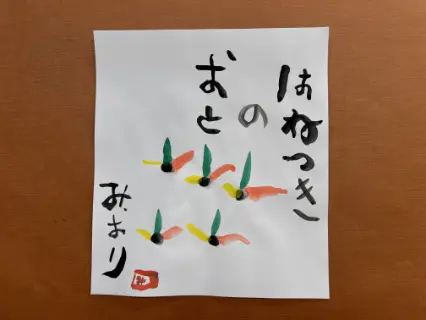 はねつき
の
おと
みおり